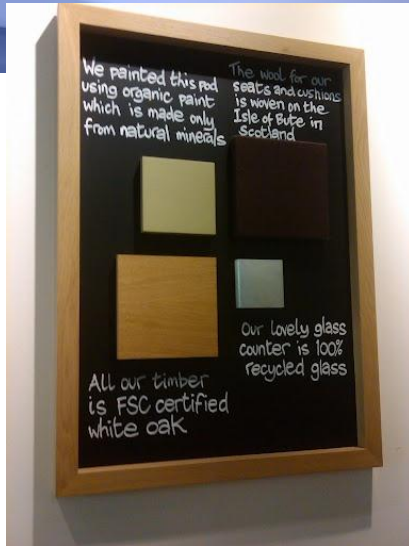 We painted this pod
using organic paint
which is made only
from natural minerals
The wool for our
seats and cushions
is woven on the
Isle of Bute in
Scotland
Our lovely glass
counter is 100%
recycled glass
All our timber
is FSC certified
white oak